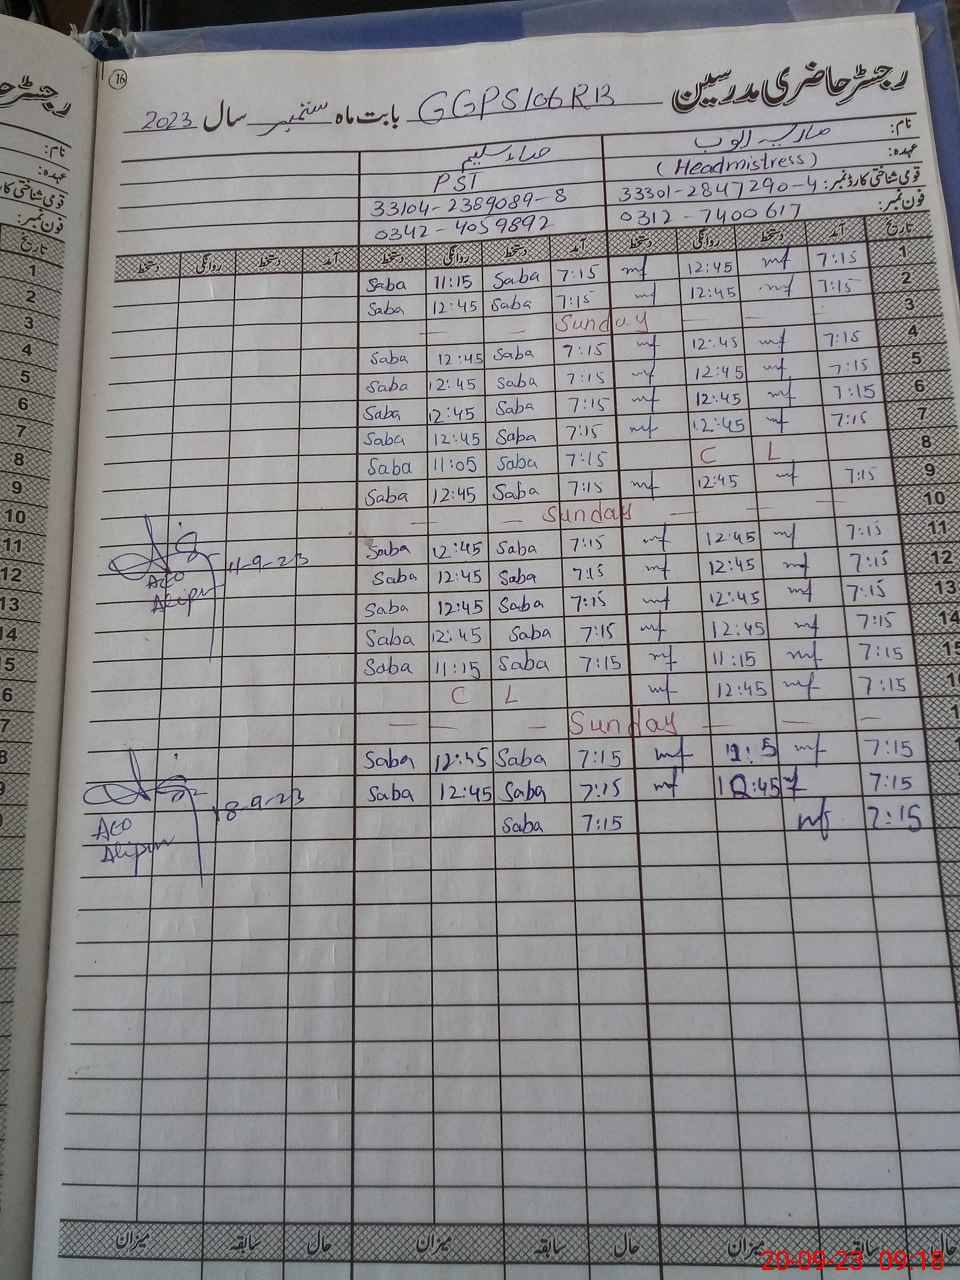 رجسٹر حاضری مدرسین GGPS106RB بابت ماہ ستمبر سال 2023
76
نام: ماریہ ایوب صباء سلیم
عہدہ: (Headmistress) PST
قومی شناختی کارڈ نمبر: 33301-2847290-4 33104-2389089-8
فون نمبر: 0312-7400617 0342-4059892
تاریخ آمد دستخط روانگی دستخط آمد دستخط روانگی دستخط آمد دستخط روانگی دستخط
1 7:15 mf 12:45 mf 7:15 Saba 11:15 Saba
2 7:15 mf 12:45 mf 7:15 Saba 12:45 Saba
3 Sunday
4 7:15 mf 12:45 mf 7:15 Saba 12:45 Saba
5 7:15 mf 12:45 mf 7:15 Saba 12:45 Saba
6 7:15 mf 12:45 mf 7:15 Saba 12:45 Saba
7 7:15 mf 12:45 mf 7:15 Saba 12:45 Saba
8 C L 7:15 Saba 11:05 Saba
9 7:15 mf 12:45 mf 7:15 Saba 12:45 Saba
10 Sunday
11 7:15 mf 12:45 mf 7:15 Saba 12:45 Saba 11-9-23
12 7:15 mf 12:45 mf 7:15 Saba 12:45 Saba AEO
13 7:15 mf 12:45 mf 7:15 Saba 12:45 Saba Alipur
14 7:15 mf 12:45 mf 7:15 Saba 12:45 Saba
15 7:15 mf 11:15 mf 7:15 Saba 11:15 Saba
7:15 mf 12:45 mf C L
Sunday
7:15 mf mf 7:15 Saba 12:45 Saba
7:15 12:45 mf 7:15 Saba 12:45 Saba 18-9-23
7:15 mf 7:15 Saba AEO
Alipur
حال سابقہ میزان حال سابقہ میزان حال سابقہ میزان
20-09-23 09:18